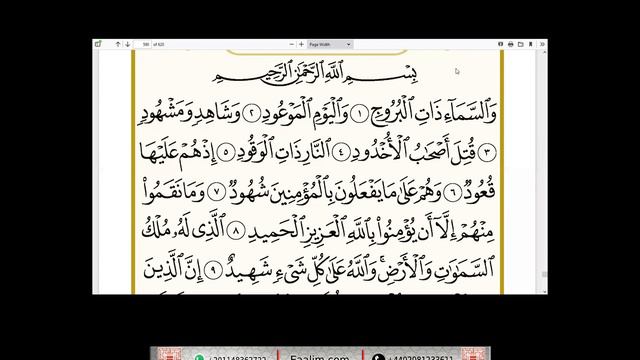 590 of 620 Page Width
بِسْمِ ٱللَّهِ ٱلرَّحْمَٰنِ ٱلرَّحِيمِ
وَٱلسَّمَآءِ ذَاتِ ٱلْبُرُوجِ ١ وَٱلْيَوْمِ ٱلْمَوْعُودِ ٢ وَشَاهِدٍ وَمَشْهُودٍ
٣ قُتِلَ أَصْحَٰبُ ٱلْأُخْدُودِ ٤ ٱلنَّارِ ذَاتِ ٱلْوَقُودِ ٥ إِذْ هُمْ عَلَيْهَا
قُعُودٌ ٦ وَهُمْ عَلَىٰ مَا يَفْعَلُونَ بِٱلْمُؤْمِنِينَ شُهُودٌ ٧ وَمَا نَقَمُوا۟
مِنْهُمْ إِلَّآ أَن يُؤْمِنُوا۟ بِٱللَّهِ ٱلْعَزِيزِ ٱلْحَمِيدِ ٨ ٱلَّذِى لَهُۥ مُلْكُ
ٱلسَّمَٰوَٰتِ وَٱلْأَرْضِ ۚ وَٱللَّهُ عَلَىٰ كُلِّ شَىْءٍ شَهِيدٌ ٩ إِنَّ ٱلَّذِينَ
+201148362722 Faalim.com +4402081233611